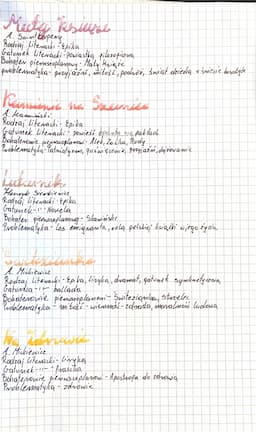 Mały Książę
A. Saint Exupery
Rodzaj literacki - Epika
Gatunek literacki - powiastka filozoficzna
Bohater pierwszoplanowy - Mały Książę
problematyka - przyjaźń, miłość, podróż, świat dziecka a świat dorosłych
Kamienie na Szaniec
A. Kamiński
Rodzaj literacki - Epika
Gatunek literacki - powieść oparta na faktach
Bohaterowie pierwszoplanowi - Alek, Zośka, Rudy
Problematyka - patriotyzm, poświęcenie, przyjaźń, dojrzewanie
Latarnik
Henryk Sienkiewicz
Rodzaj literacki - Epika
Gatunek -||- Nowela
Bohater pierwszoplanowy - Skawiński
Problematyka - los emigranta, rola polskiej książki w jego życiu
Świtezianka
A. Mickiewicz
Rodzaj literacki - Epika, liryka, dramat, gatunek synkretyczny
Gatunek -||- ballada
Bohaterowie pierwszoplanowi - Świtezianka, strzelec
Problematyka - miłość - wierność - zdrada, moralność ludowa
Na Zdrowie
A. Mickiewicz
Rodzaj literacki - liryka
Gatunek -||- fraszka
Bohaterowie pierwszoplanowi - Apostrofa do zdrowia
Problematyka - zdrowie